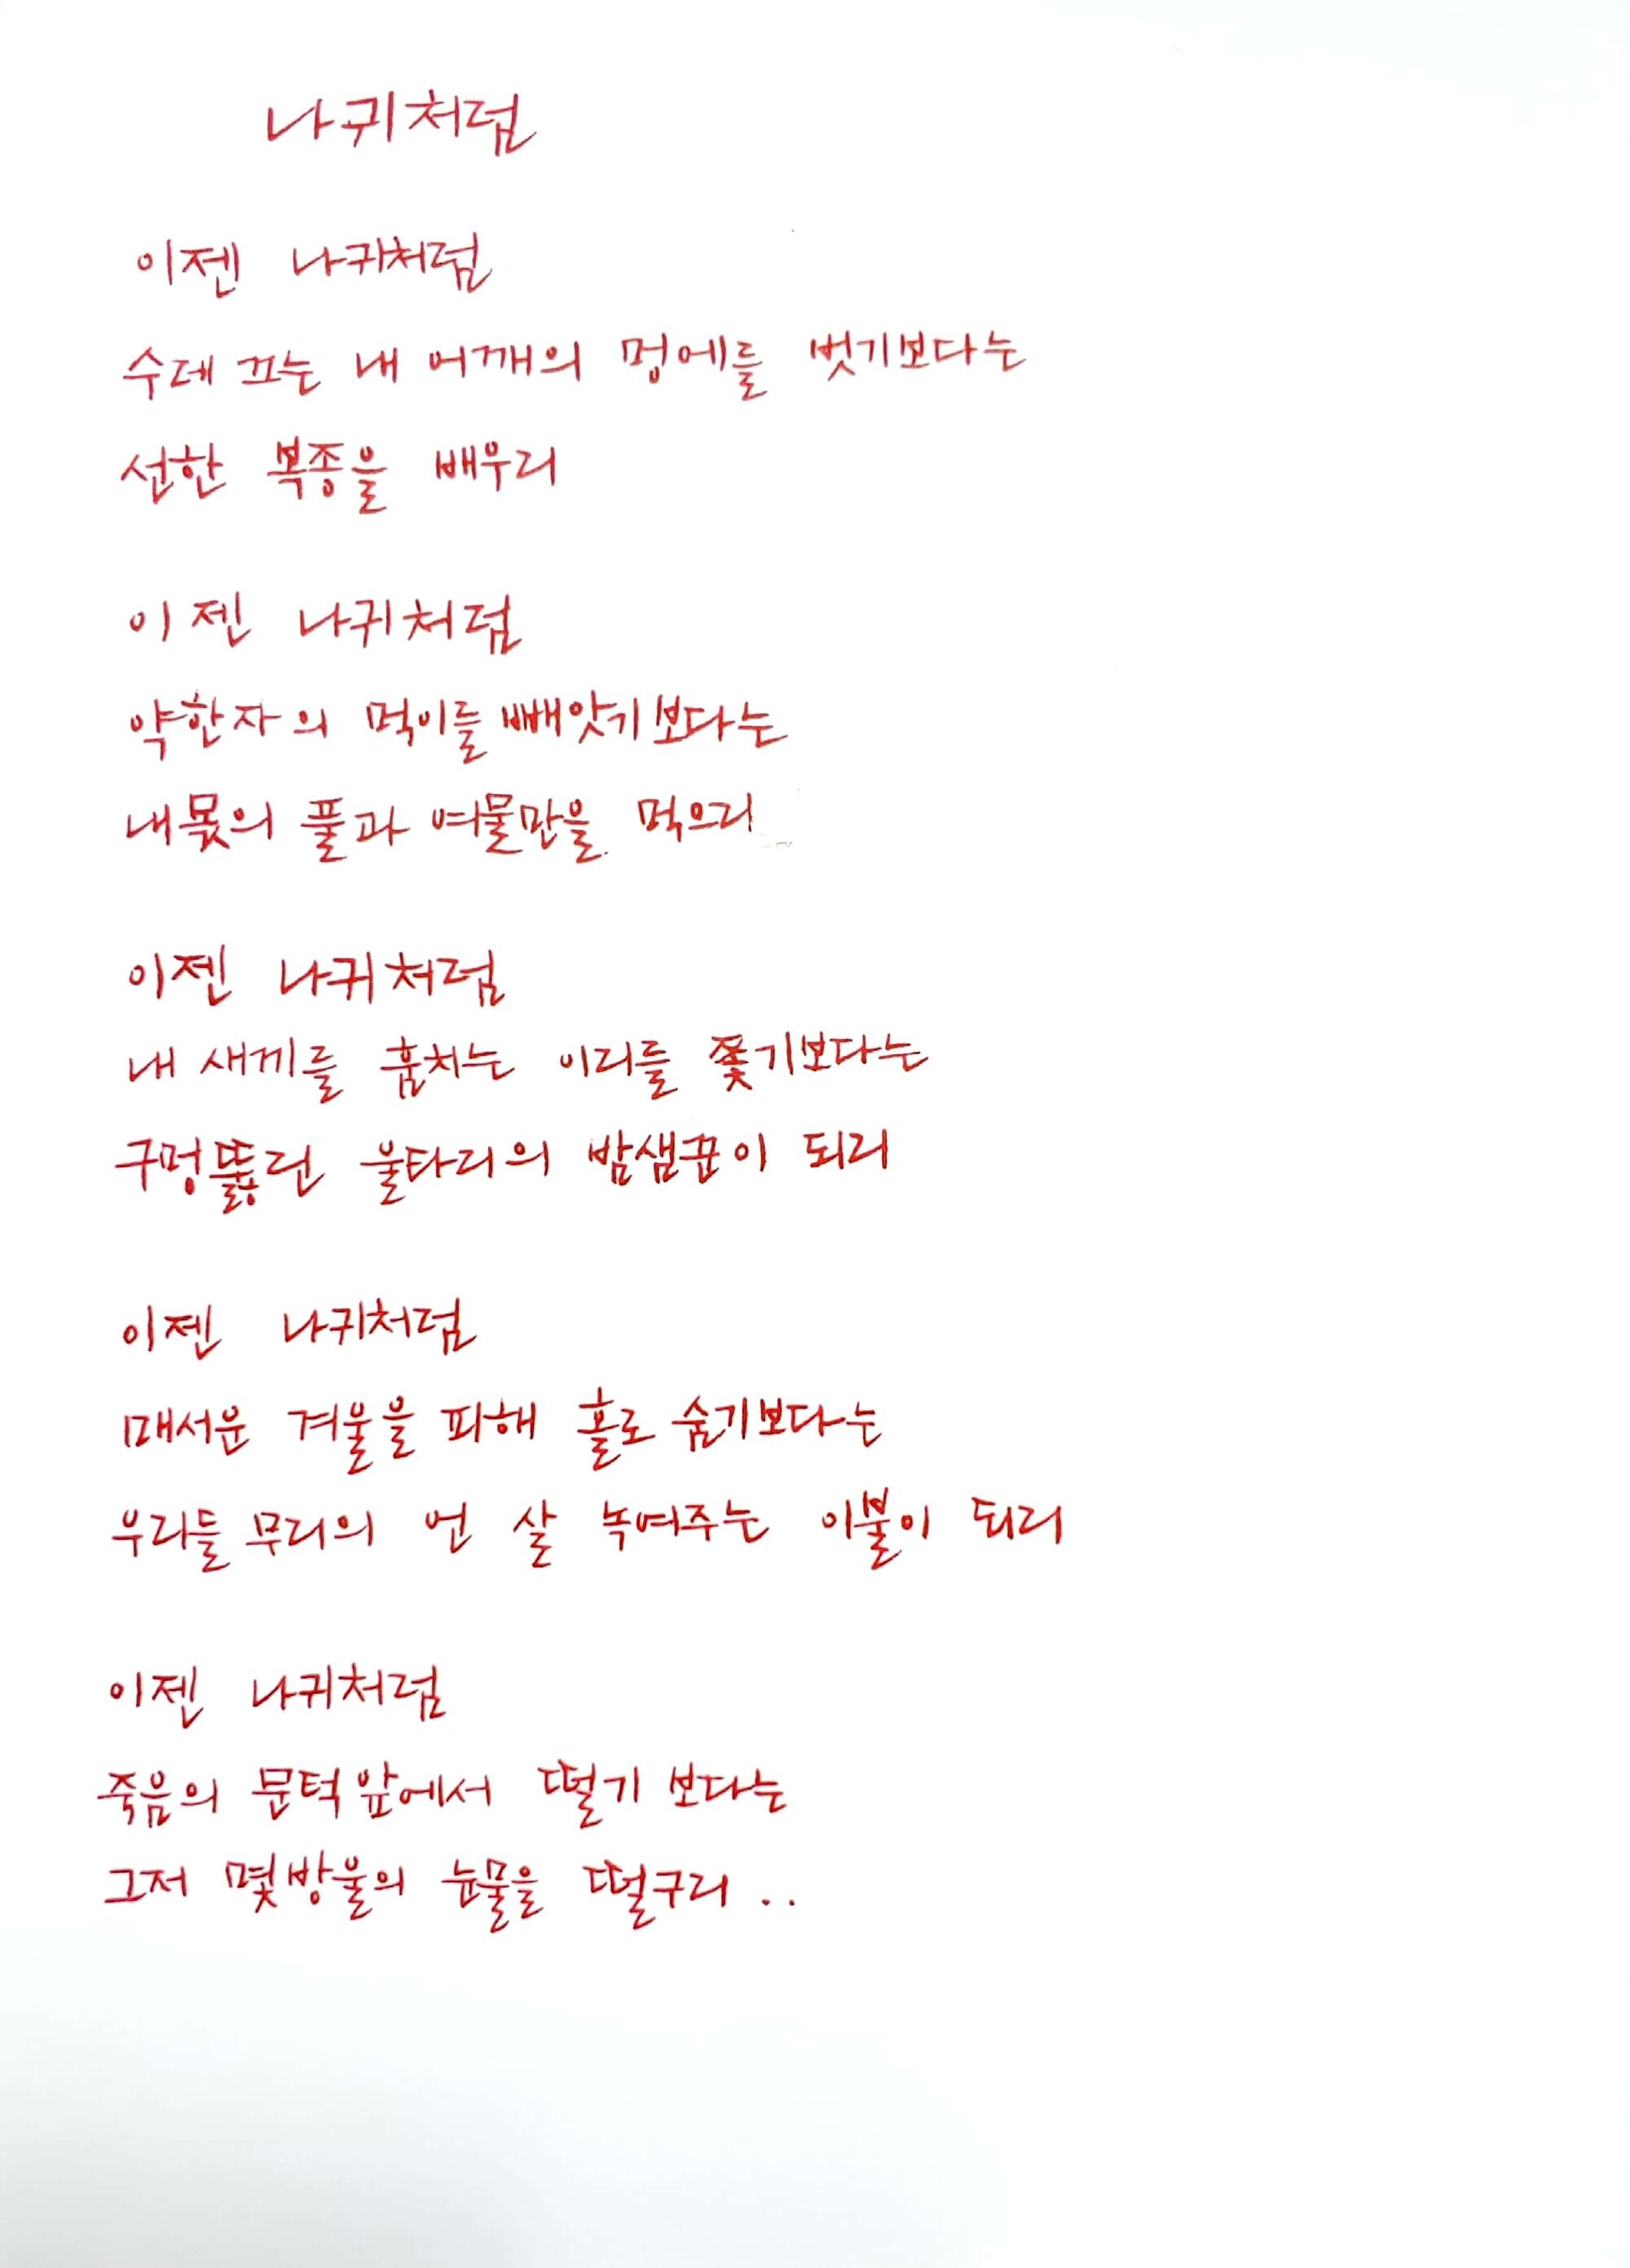 나귀처럼
이젠 나귀처럼
수레 끄는 내 어깨의 멍에를 벗기보다는
선한 복종을 배우리
이젠 나귀처럼
약한자의 먹이를 빼앗기보다는
내몫의 풀과 여물만을 먹으리
이젠 나귀처럼
내 새끼를 훔치는 이리를 쫓기보다는
구멍뚫린 울타리의 밤샘꾼이 되리
이젠 나귀처럼
매서운 겨울을 피해 홀로 숨기보다는
우리들 무리의 언 살 녹여주는 이불이 되리
이젠 나귀처럼
죽음의 문턱앞에서 떨기 보다는
그저 몇방울의 눈물을 떨구리 ..